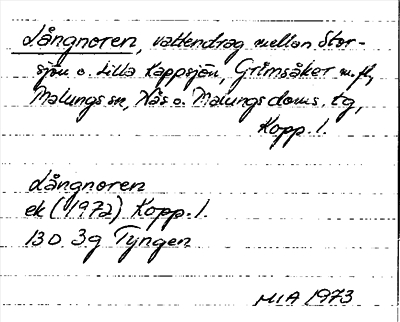 Långnoren, vattendrag mellan Stor-
sjön o. Lilla Kappsjön, Grimsåker m.fl,
Malungs sn, Nås o. Malungs doms. tg,
Kopp. l.
Långnoren
ek (1972) Kopp. l.
13D 3g Tyngen
MIA 1973